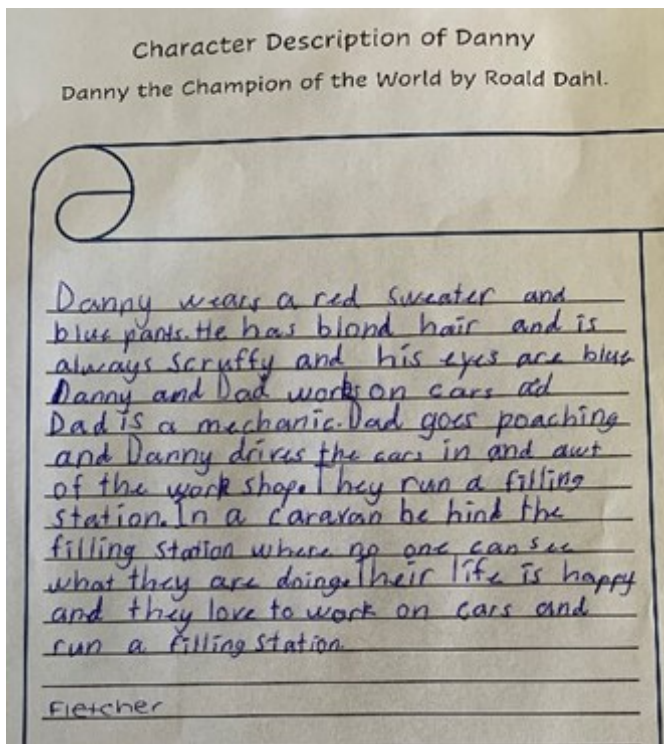 Character Description of Danny
Danny the Champion of the World by Roald Dahl.
Danny wears a red sweater and
blue pants. He has blond hair and is
always scruffy and his eyes are blue
Danny and Dad works on cars ad
Dad is a mechanic. Dad goes poaching
and Danny drives the cars in and awt
of the work shop. They run a filling
station. In a caravan be hind the
filling station where no one can see
what they are doing. Their life is happy
and they love to work on cars and
run a filling station
Fletcher